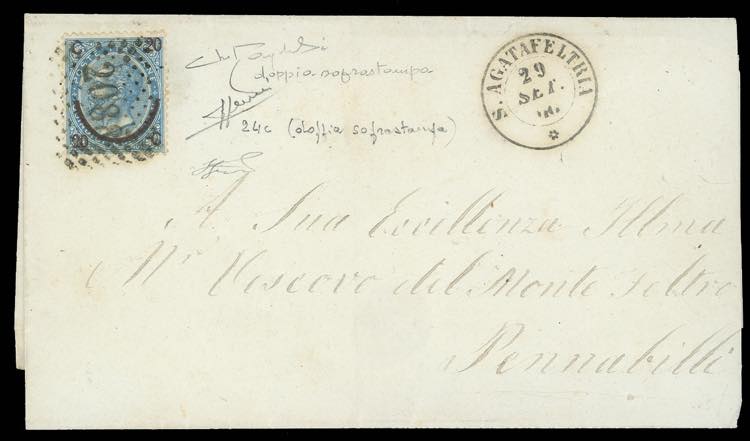 C 20
20 C
208
doppia sofrastampa
24c (doppia sofrastampa)
S. AGATAFELTRIA
29
SET.
66
A Sua Eccillenza Illma
Mr Vescovo del Monte Feltro
Pennabilli